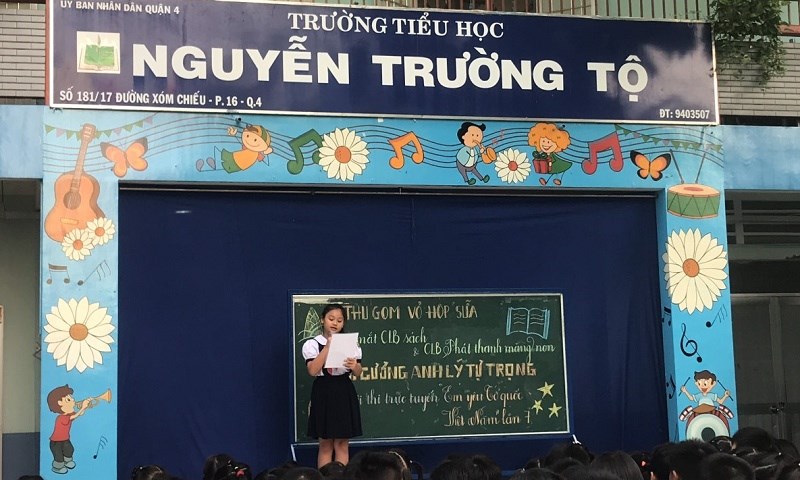 ỦY BAN NHÂN DÂN QUẬN 4
TRƯỜNG TIỂU HỌC
NGUYỄN TRƯỜNG TỘ
SỐ 181/17 ĐƯỜNG XÓM CHIẾU - P.16 - Q.4
ĐT: 9403507
THU GOM VỎ HỘP SỮA
mắt CLB sách
& CLB Phát thanh măng non
GƯƠNG ANH LÝ TỰ TRỌNG
thi trực tuyến "Em yêu Tổ quốc
Việt Nam" lần 7